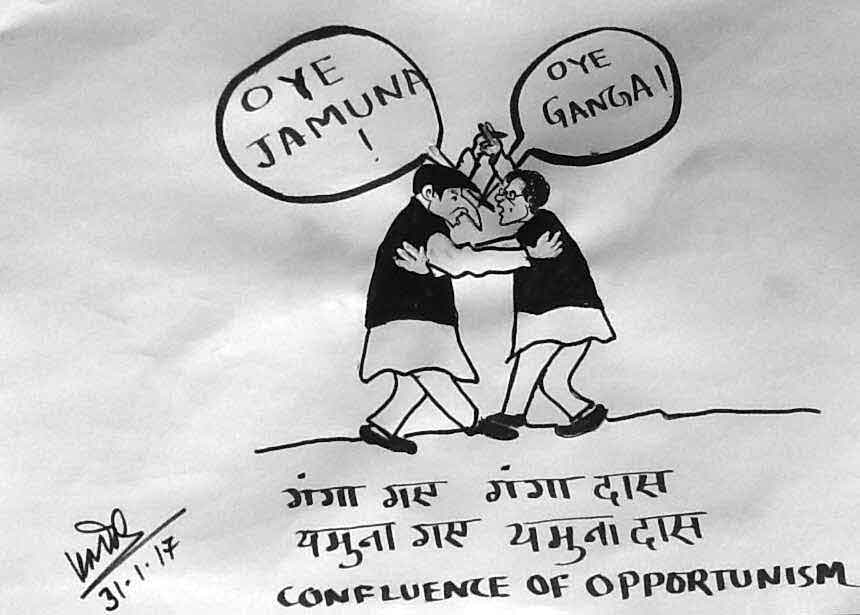 OYE
JAMUNA
!
OYE
GANGA!
गंगा गए गंगा दास
यमुना गए यमुना दास
CONFLUENCE OF OPPORTUNISM
31.1.17